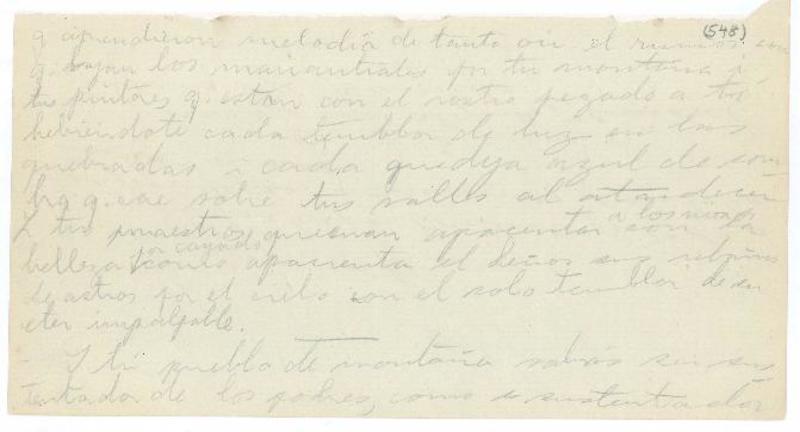 (548)
q. aprendieron melodía de tanto oir el rumor con
q. bajan los manantiales por tu montaña i
tus pintores q. están con el rostro pegado a ti
bebiéndote cada temblor de luz en las
quebradas i cada guedeja azul de som
bra q. cae sobre tus valles al atardecer
I tus maestros quieran apacentar con la
a los niños
belleza como apacienta el Señor sus rebaños
de astros por el cielo con el solo temblor de su
eter impalpable.
I tú pueblo de montaña sabrás ser sus
tentador de los pobres, como sustentador